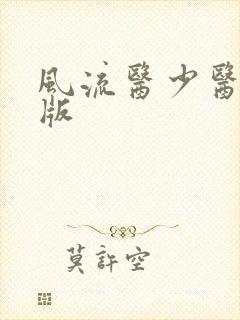 風流醫少醫
版
莫許空